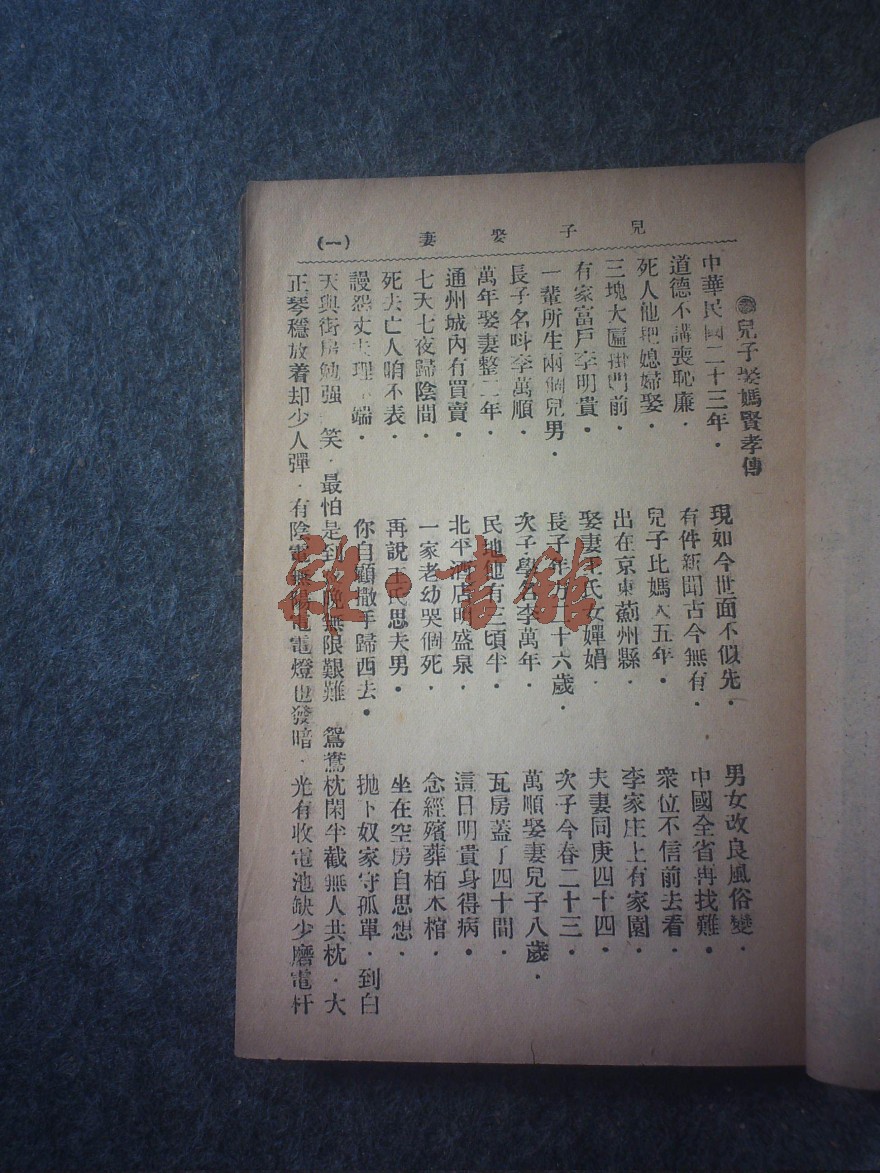 兒子娶妻 (一)
兒子娶媽賢孝傳
中華民國二十三年．現如今世面不似先．男女改良風俗變．
道德不講喪恥廉．有件新聞古今無有．中國全省再找難．
死人他把媳婦娶．兒子比媽大五年．衆位不信前去看．
三塊大匾掛門前．出在京東薊州縣．李家庄上有家園．
有家富戶李明貴．娶妻王氏女嬋娟．夫妻同庚四十四．
一輩所生兩個兒男．長子年方十六歲．次子今春二十三．
長子名呌李萬順．次子學名李萬年．萬順娶妻兒子八歲．
萬年娶妻整二年．民地他有三頃半．瓦房蓋了四十間．
通州城內有買賣．北平酒店明盛泉．這日明貴身得病．
七天七夜歸陰間．一家老幼哭個死．念經殯葬栢木棺．
死去亡人咱不表．再說王氏思夫男．坐在空房自思想．
謾怨丈夫理端．你自顧撒手歸西去．抛下奴家守孤單．到白
天與街房勉强笑．最怕是到晚無限艱難 鴛鴦枕閑半截無人共枕．大
正琴穩放着却少人彈．有陰電無陽電電燈也發暗．光有收電池缺少磨電杆
雜·書館